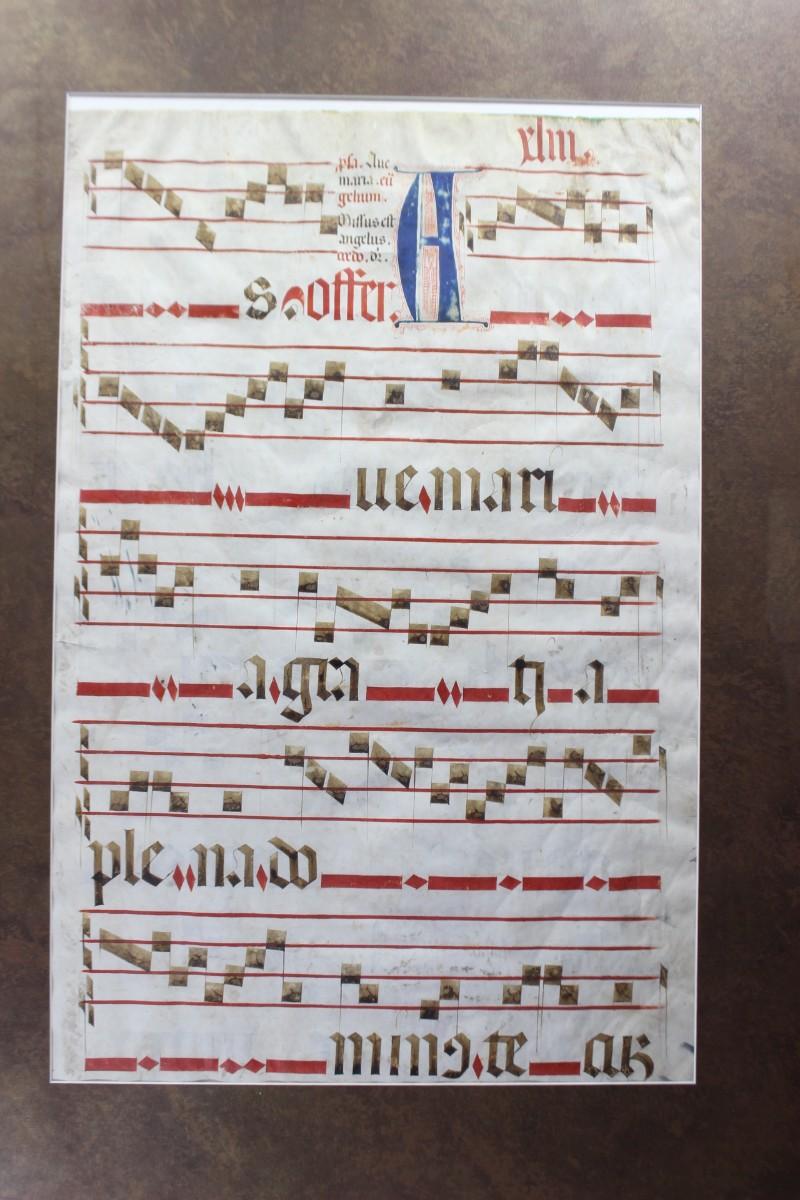 xliii.
psa. Aue
maria. eū
gelium.
Missus est
angelus.
credo. or.
s. offer. A
ue mari
a gra ti a
ple na do
min9. te cuz